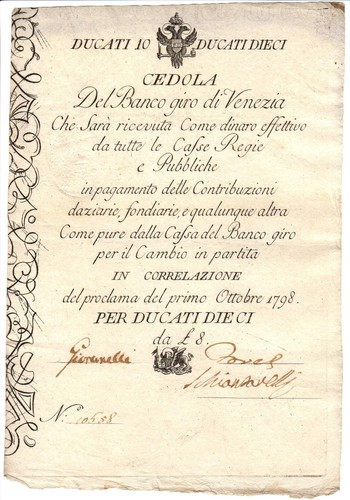 DUCATI 10 DUCATI DIECI
CEDOLA
Del Banco giro di Venezia
Che Sarà ricevuta Come dinaro effettivo
da tutte le Casse Regie
e Pubbliche
in pagamento delle Contribuzioni
daziarie, fondiarie, e qualunque altra
Come pure dalla Cassa del Banco giro
per il Cambio in partità
IN CORRELAZIONE
del proclama del primo Ottobre 1798.
PER DUCATI DIECI
da £ 8.
Giovanelli
N.º 10658